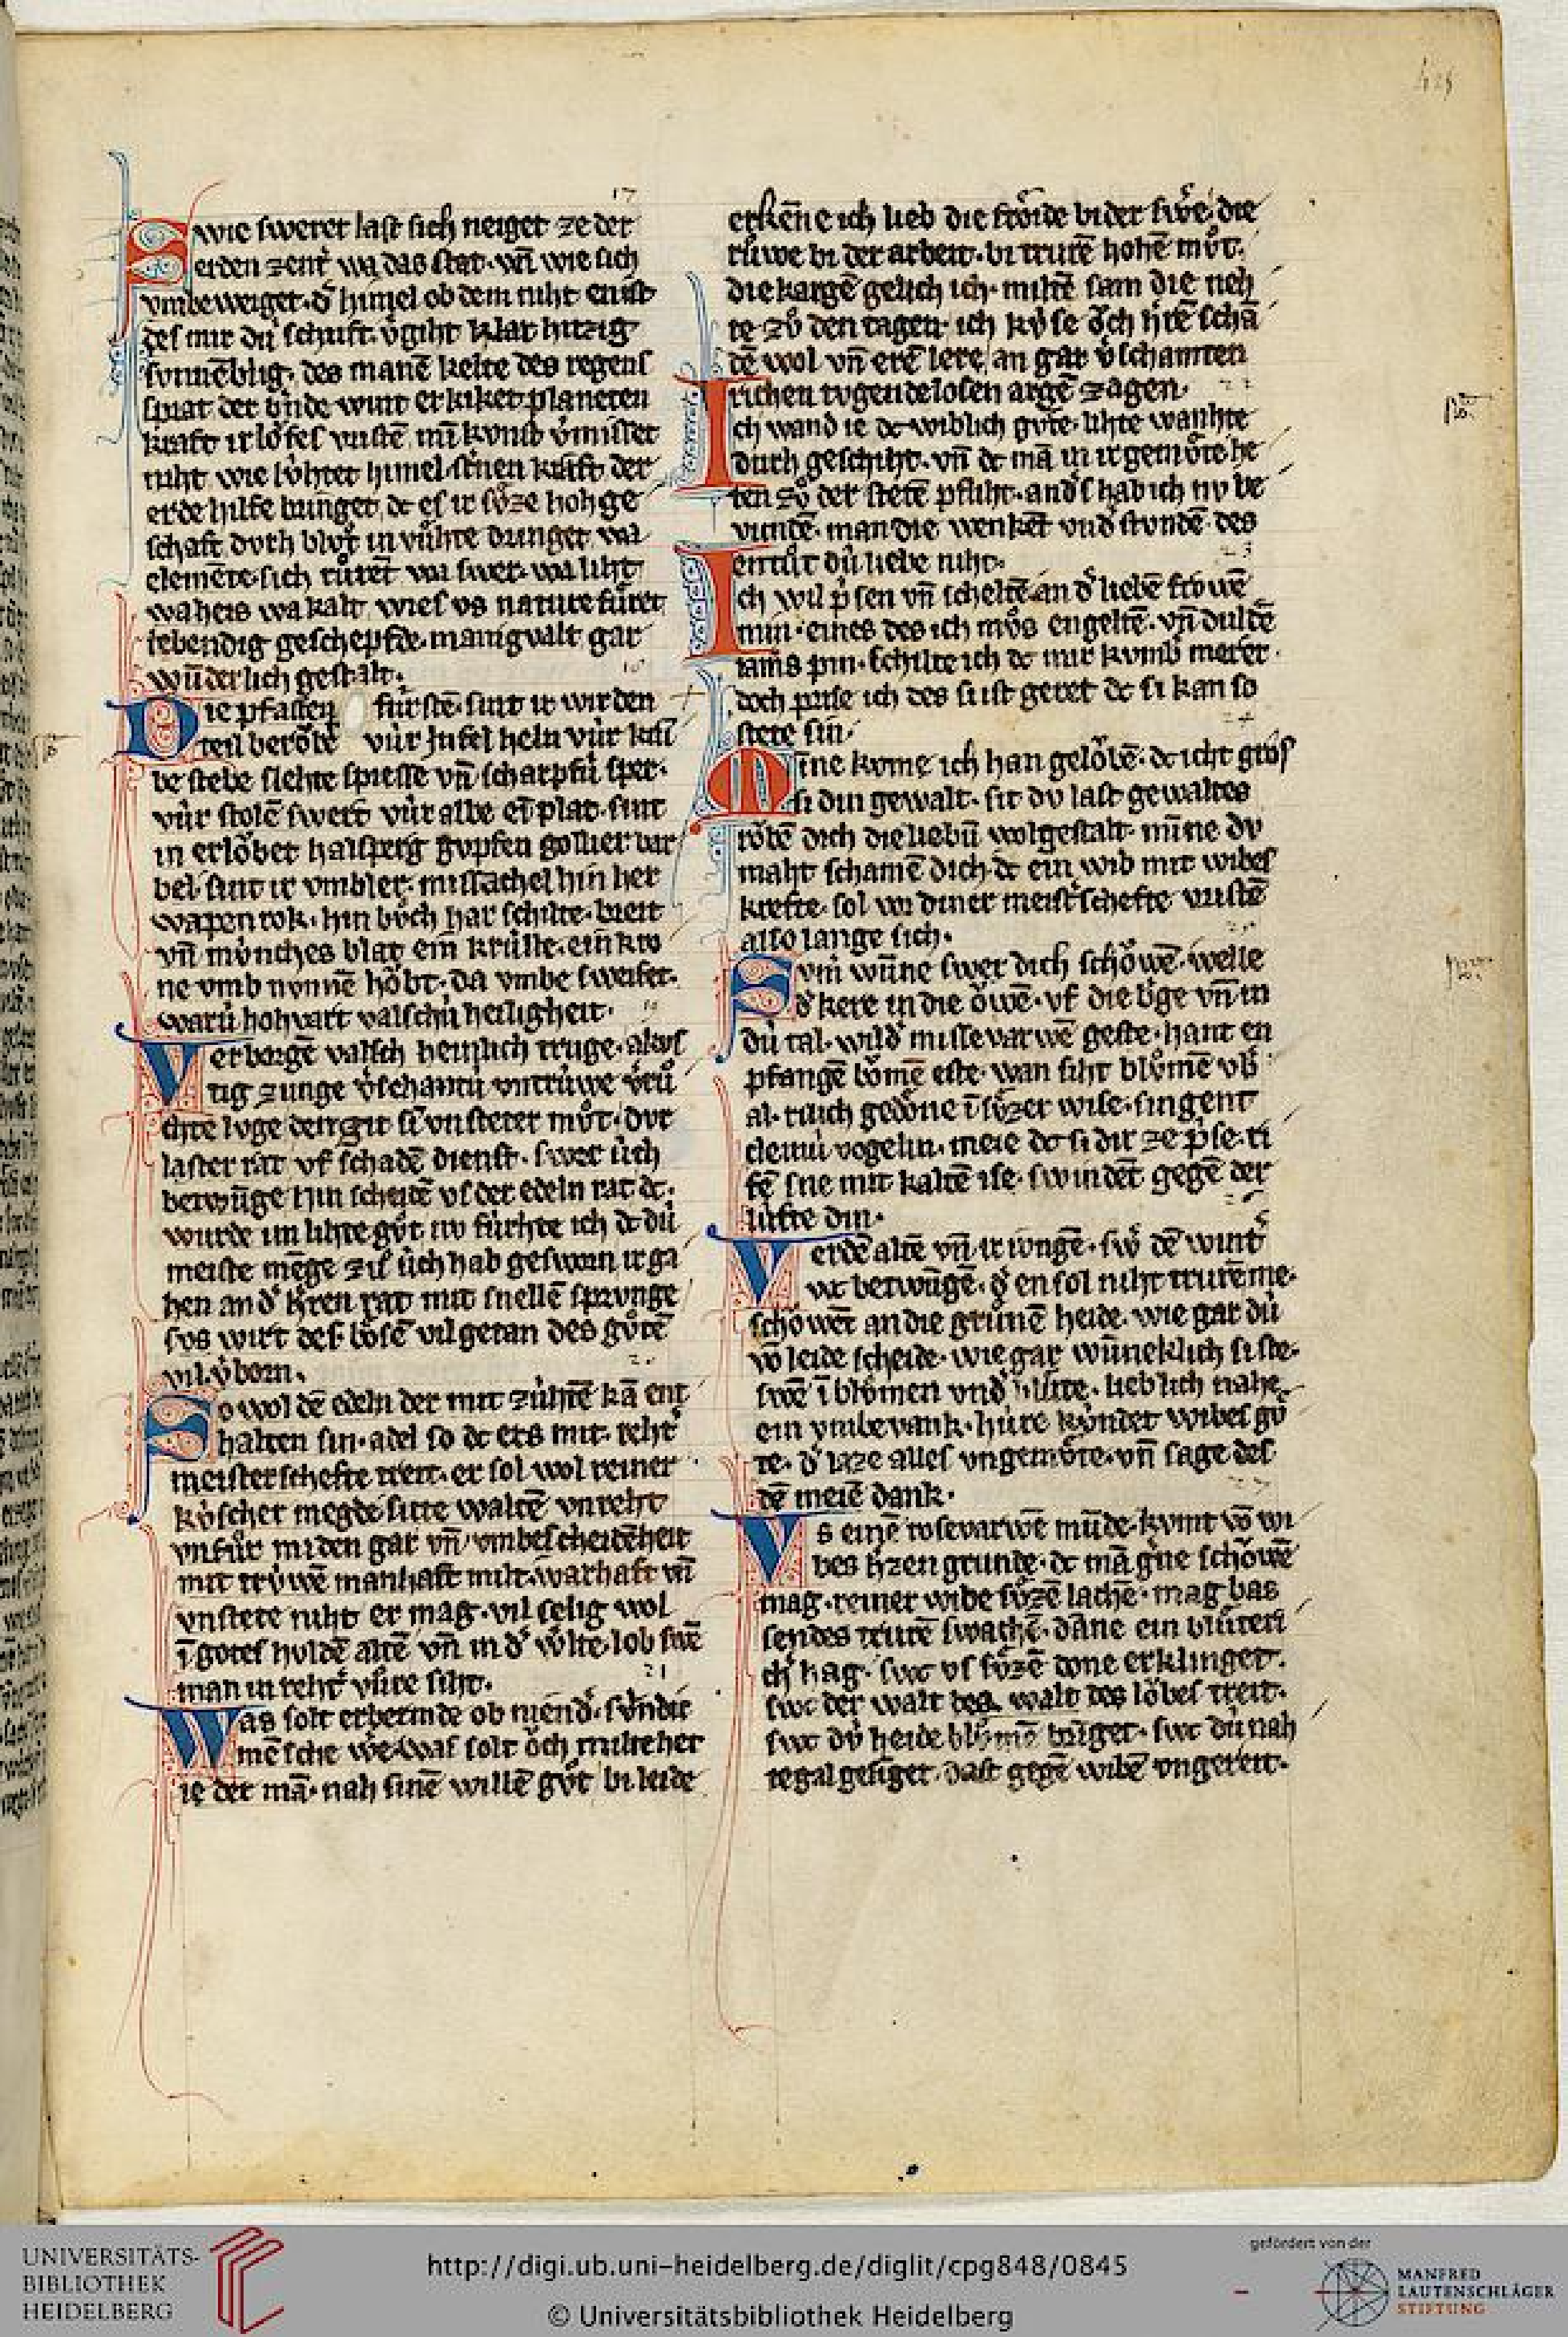 425
17
Swie swerer last sich neiget ze der
erden zentͥ wa das stat. vn̄ wie sich
vmbe weiget. dͤ himel ob dem niht enist
des mir dú schrift. v̓giht klar hitzig
sunnē blig. des manē kelte des regens
kraft
niht wie himel kraft der
erde hilfe bringet, dc es ir sv̊ze hoh ge
schaft dvrh
elemēte. sich rv̊ret wa swer. wa liht
wa heis wa kalt. wies vs nature fv̊ret
lebendig geschepfde. manigvalt gar
wūderlich gestalt.
18
Die pfaffen fúrstē. sint ir wirden
teil berǒbt vúr Jnfel heln vúr krū
be stebe slehte spiesse vn̄ scharpfú sper.
vúr stolē swert vúr albe ein plat. sint
in erlǒbet halsperg gvpfen gollier bar
bel. sint ir vmbler. hin her
wapen rok. hin bv̊ch har schilte. breit
vn̄ mv́nches blat ein krúlle. ein kro
ne vmb nvnnē hǒbt. da vmbe sweifet.
warú hohvart valschú heiligheit.
19
Verborgē valsch heinlich trvge.
tig zunge v̓schantú vntrúwe
chte lvge der git sin vnsteter mv̊t. dvr
laster rat vf schadē dienst. swer úch
betwūge hin scheidē vs der edeln rat dc.
wurde im lihte gv̊t nv fúrhte ich dc dú
meiste mēge zů úch hab gesworn ir ga
hen an dͤ h̓ren rat mit snellē sprvnge
svs wirt des bǒsē vil getan des gv̊tē
vil v̓born.
20
So wol dē edeln der mit zúhtē kā ent
halten sin. adel so dc ers mit. reht̓
meisterschefte treit. er sol wol reiner
kv́scher megde sitte waltē vnreht
vnfůr miden gar vn̄ vmbescheidēheit
mit trv́wē manhaft milt. warhaft vn̄
vnstete niht er mag. vil selig wol
in gotes hvldē altē vn̄ in dͤ w̓lte. lob swē
man in reht̓ vfvre siht.
21
Was solt erbermde ob niendͤ. svndic
mēsche w̓e. was solt ǒch milte her
ie der mā. nah sinē willē gv̊t bi leide
erkēne ich lieb die frǒide bi der sw̓e. die
rv̊we bi der arbeit. bi trurē hohē mv̊t.
die kargē gelich ich. miltē sam die neh
te zů den tagen. ich kv́se ǒch h̓rē schā
dē wol vn̄ erē lere, an gar v̓schamten
richen tvgendelosen argē zagen.
22
Ich wand ie dc wiblich gv̊te. lihte wanhte
dvrh geschiht. vn̄ dc mā in ir gemv̊te he
ten zů der stetē pfliht. andͤs hab ich nv be
vundē. man die wenkēt vndͤ stvndē des
entůt dú liebe niht.
23
Ich wil p̓sen vn̄ scheltē. an dͤ liebē frǒwē
min. eines des ich mv̊s engeltē. vn̄ duldē
iam̓s pin. schilte ich dc mir kvmb̓ meret.
doch prise ich des si ist geret dc si kan so
stete sin.
24
Mīne kvme ich han gelǒbē. dc icht gros
si din gewalt. sit dv last gewaltes
rǒbē dich die liebū wolgestalt. mīne dv
maht schamē dich. dc ein wib mit wibes
krefte. sol vor diner meist̓schefte vristē
also lange sich.
25
Svm̓ wūne swer dich schǒwē. welle
dͤ kere in die ǒwē. vf die b̓ge vn̄ in
dú tal. wildͤ missevarwē geste. hant en
pfangē bǒmē este. wan siht blv̊mē vb̓
al. rilich gedǒne in sv̊zer wise. singent
cleinú vogelin. meie dc si dir ze p̓se. ri
fē sne mit kaltē ise. swindēt gegē der
lúfte din.
26
Werdē altē vn̄ ir ivngē. sw̓ dē wint̓
wc betwūgē. dͤ en sol niht trurē me.
schǒwēt an die grúnē heide. wie gar dú
vō leide scheide. wie gar wūneklich si ste.
swē in blv̊men vndͤ blůte. lieblich nahe
ein vmbevank. húre kv́ndet wibes gv̊
te. dͤ laze alles vngemv̊te. vn̄ sage des
dē meiē dank.
27
Vs einē rosevarwē mūde. kvmt vō wi
bes h̓zen grunde. dc mā g̓ne schǒwē
mag. reiner wibe sv̊zē lachē. mag bas
sendes trurē swachē. dāne ein blúten
ch̓ hag. swc vs sv̊zē done erklinget.
swc der walt des walt des lǒbes treit.
swc dú heide blv̊mē bringet. swc dú nah
tegal gesiget. dast gegē wibē vngereit.
UNIVERSITÄTS-
BIBLIOTHEK
HEIDELBERG
http://digi.ub.uni-heidelberg.de/diglit/cpg848/0845
© Universitätsbibliothek Heidelberg
gefördert von der
MANFRED
LAUTENSCHLÄGER
STIFTUNG